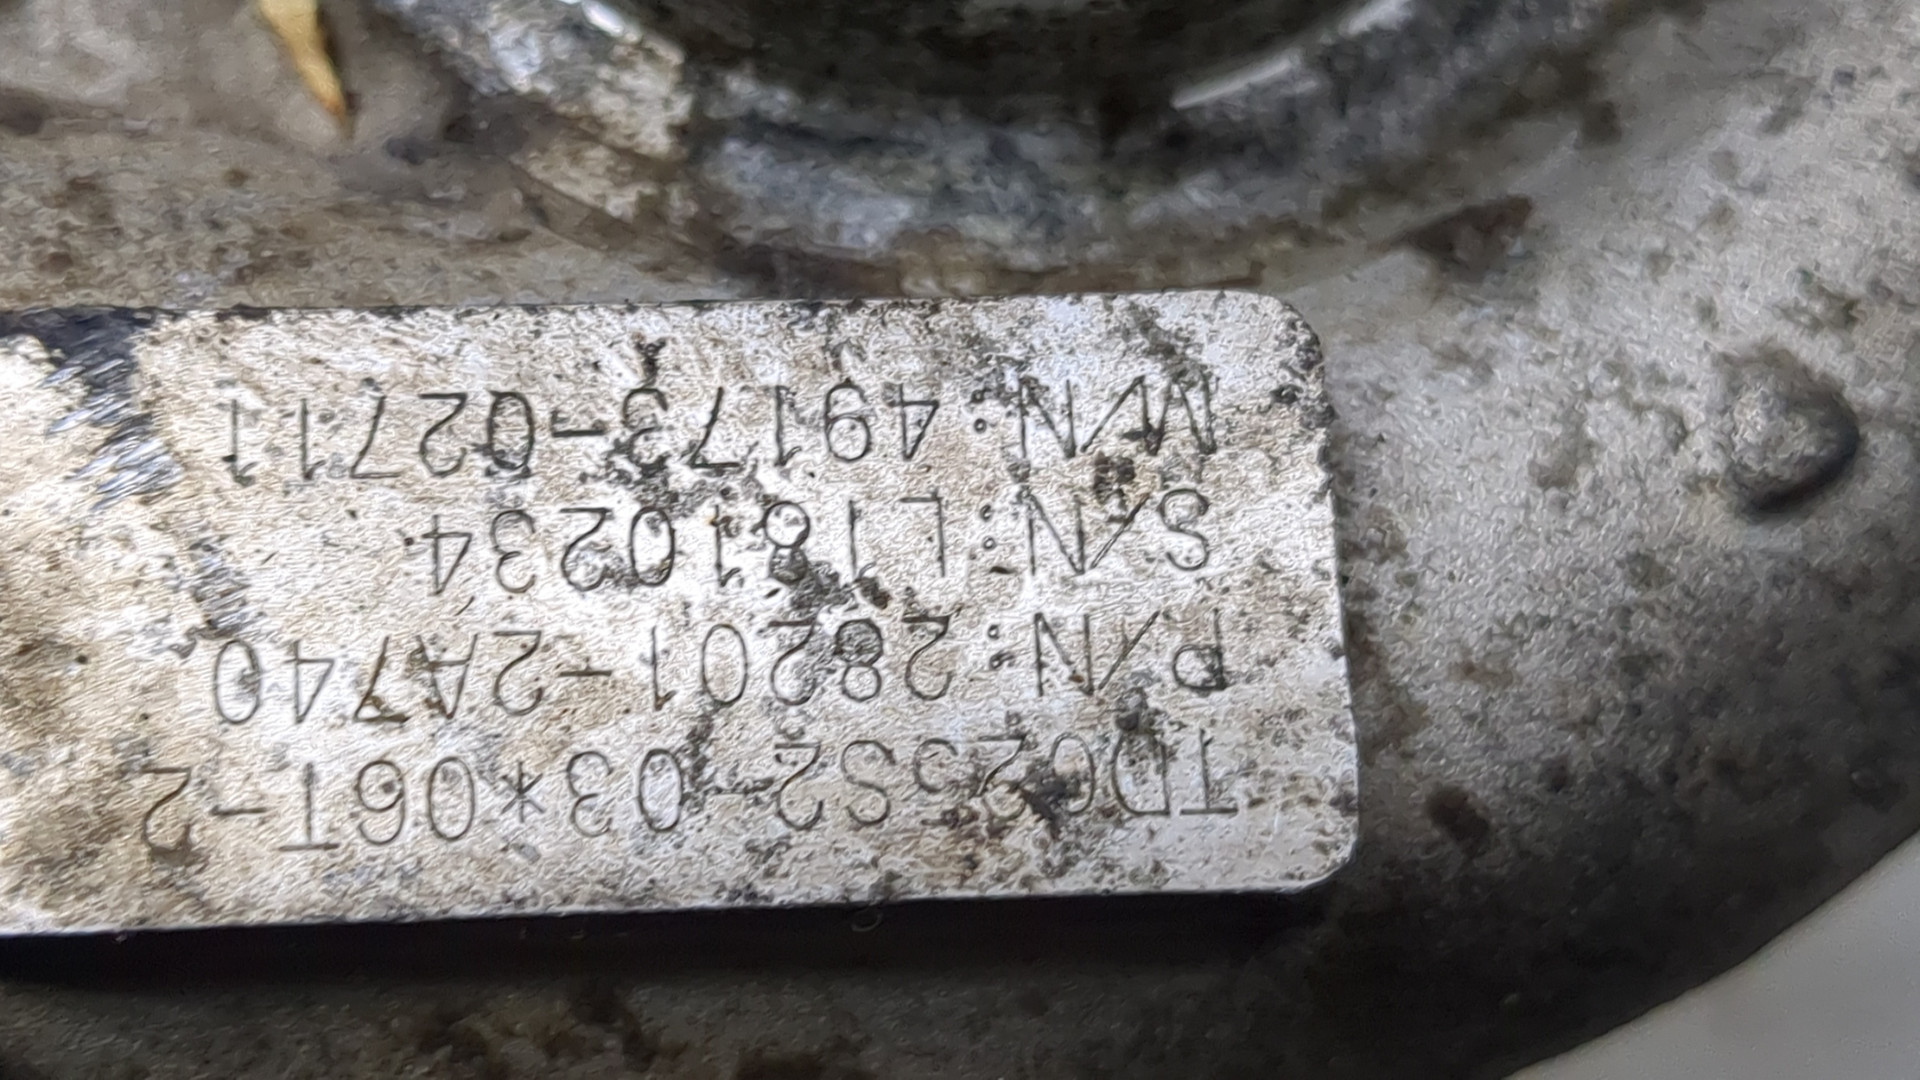 TD025S2-03*06T-2
P/N:28201-2A740
S/N:L1810234
M/N:49173-02711